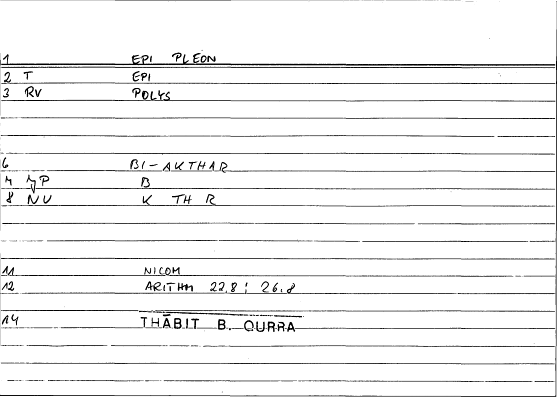 1 EPI PLEON
2 T EPI
3 RV POLYS
6 BI-AKTHAR
B
8 NV K TH R
11 NICOM
12 ARITHM 22.8; 26.8
14 THĀBIT B. QURRA